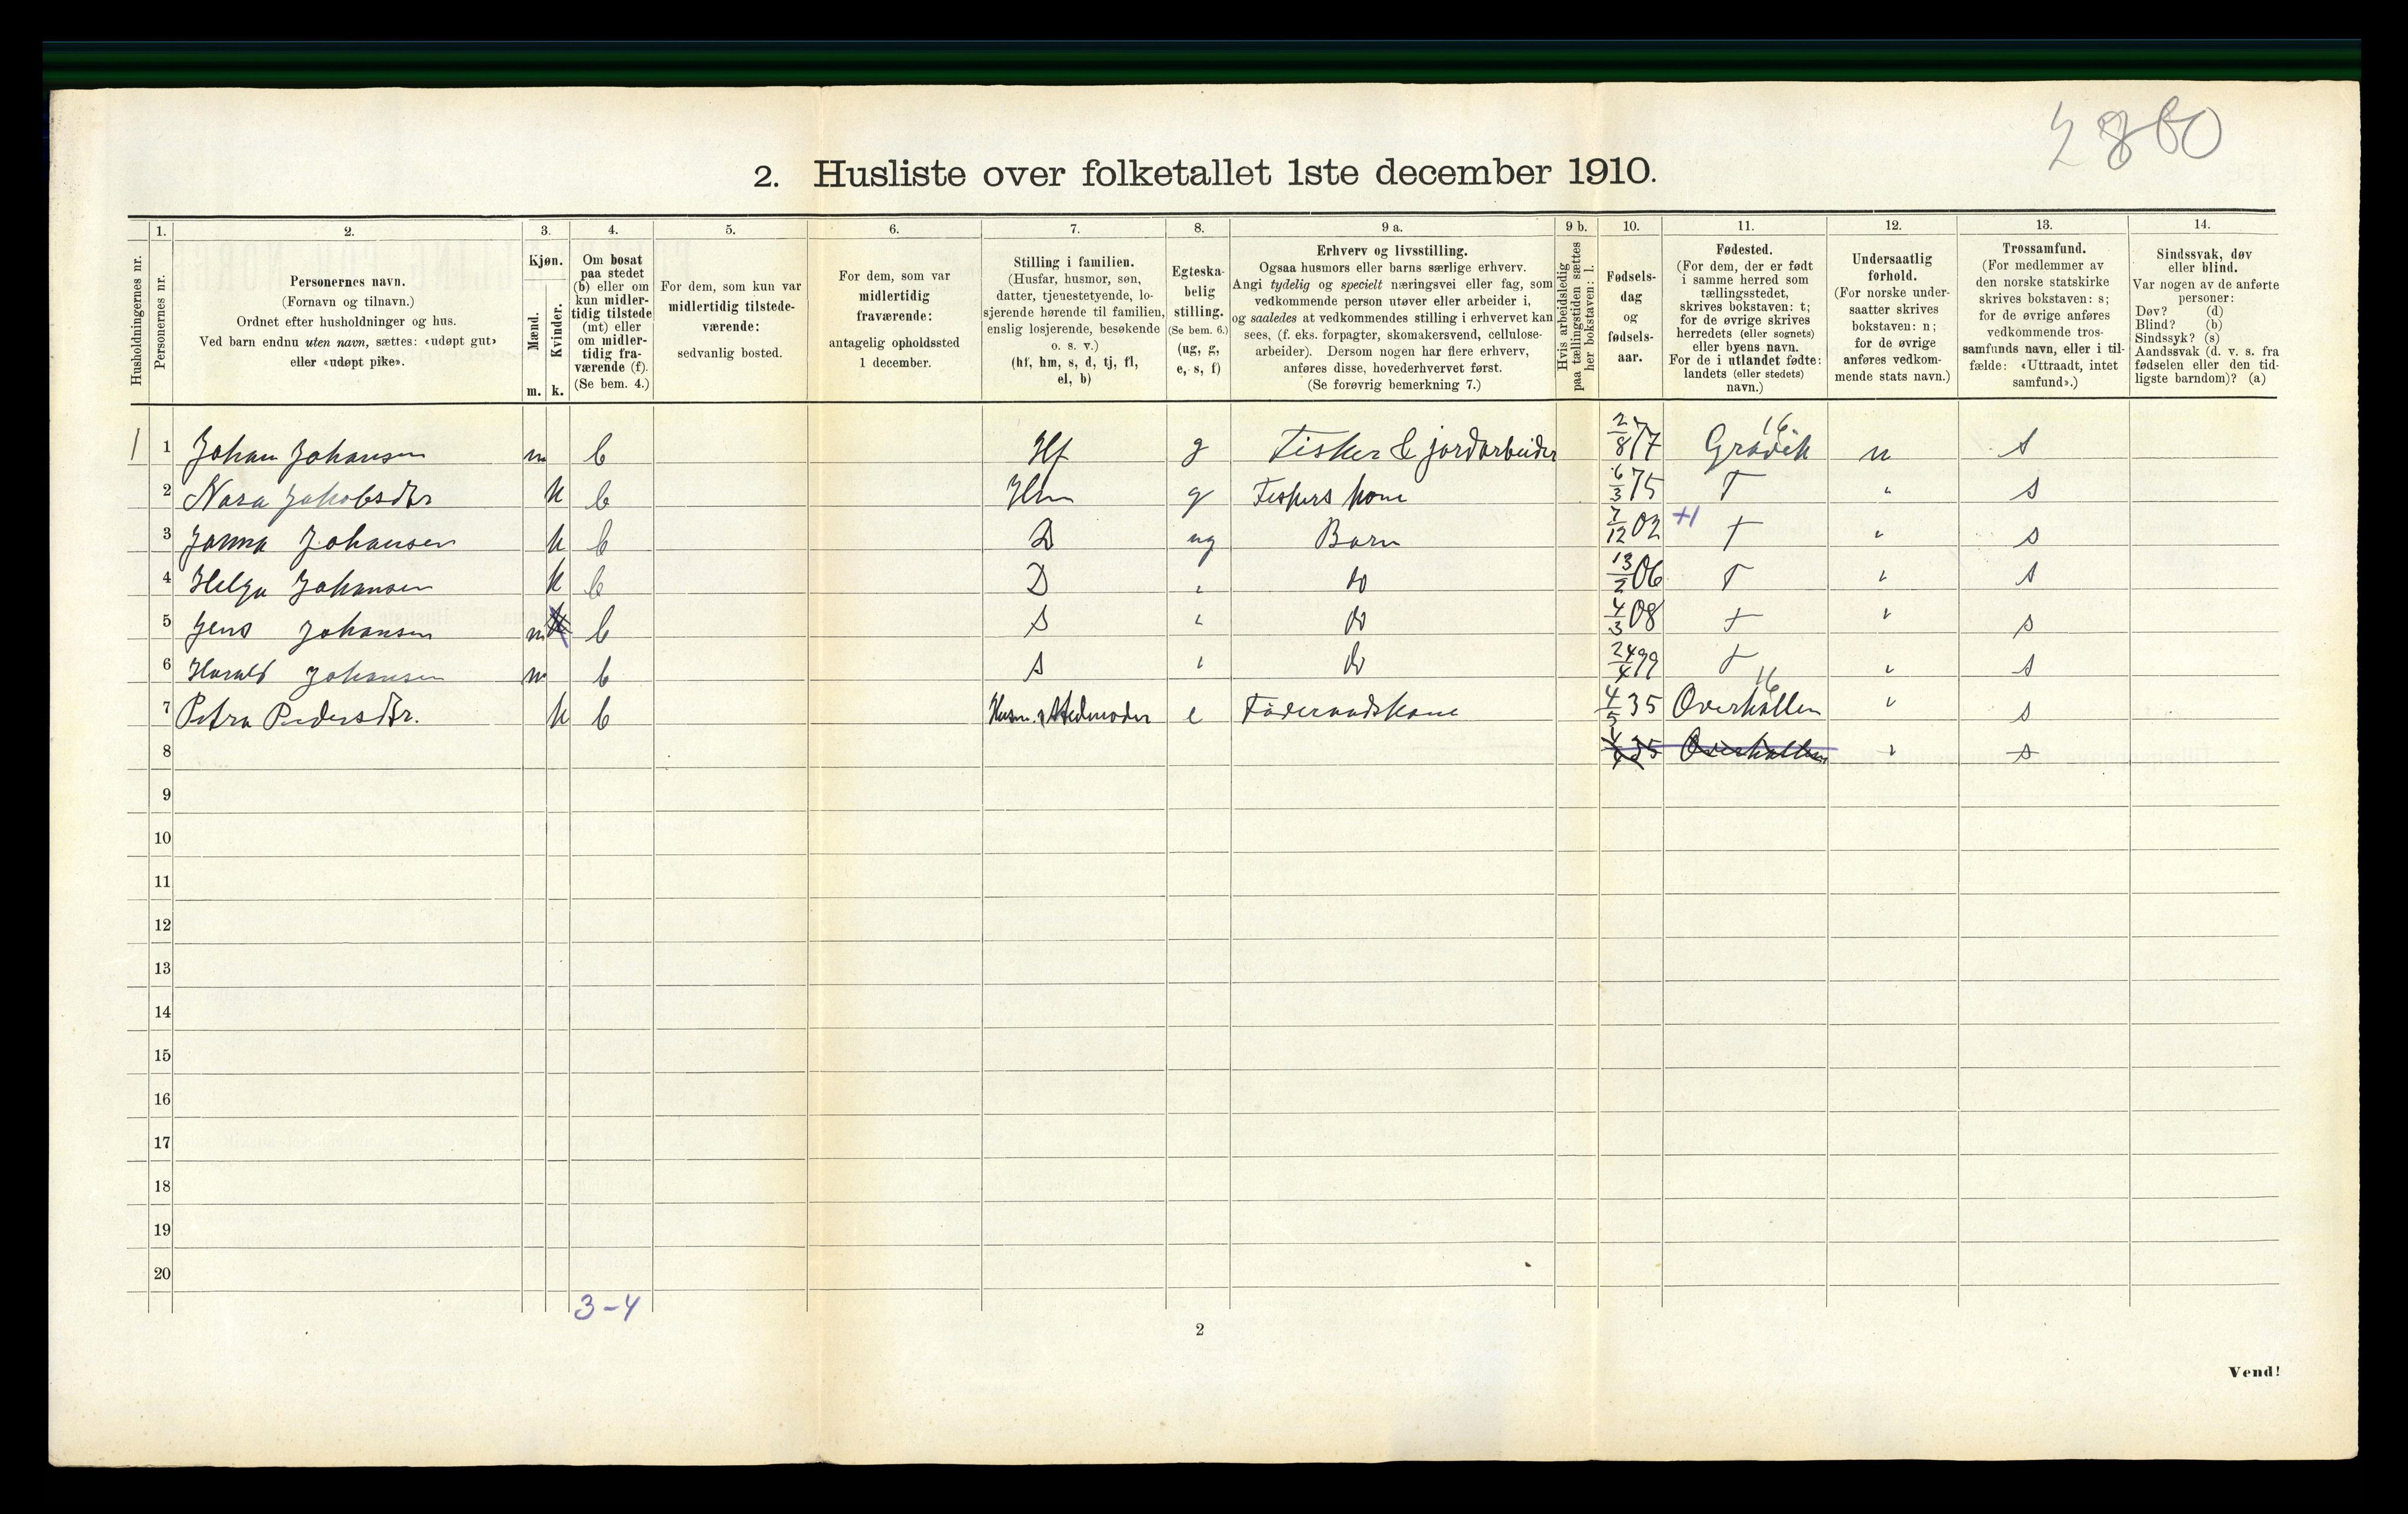 2860
2. Husliste over folketallet 1ste december 1910.
Husholdningernes nr.
1. Personernes nr.
2. Personernes navn.
(Fornavn og tilnavn.)
Ordnet efter husholdninger og hus.
Ved barn endnu uten navn, sættes: «udøpt gut»
eller «udøpt pike».
3. Kjøn.
Mænd. m.
Kvinder. k.
4. Om bosat
paa stedet
(b) eller om
kun midler-
tidig tilstede
(mt) eller
om midler-
tidig fra-
værende (f).
(Se bem. 4.)
5. For dem, som kun var
midlertidig tilstede-
værende:
sedvanlig bosted.
6. For dem, som var
midlertidig
fraværende:
antagelig opholdssted
1 december.
7. Stilling i familien.
(Husfar, husmor, søn,
datter, tjenestetyende, lo-
sjerende hørende til familien,
enslig losjerende, besøkende
o. s. v.)
(hf, hm, s, d, tj, fl,
el, b)
8. Egteska-
belig
stilling.
(Se bem. 6.)
(ug, g,
e, s, f)
9 a. Erhverv og livsstilling.
Ogsaa husmors eller barns særlige erhverv.
Angi tydelig og specielt næringsvei eller fag, som
vedkommende person utøver eller arbeider i,
og saaledes at vedkommendes stilling i erhvervet kan
sees, (f. eks. forpagter, skomakersvend, cellulose-
arbeider). Dersom nogen har flere erhverv,
anføres disse, hovederhvervet først.
(Se forøvrig bemerkning 7.)
9 b. Hvis arbeidsledig
paa tællingstiden sættes
her bokstaven: l.
10. Fødsels-
dag
og
fødsels-
aar.
11. Fødested.
(For dem, der er født
i samme herred som
tællingsstedet,
skrives bokstaven: t;
for de øvrige skrives
herredets (eller sognets)
eller byens navn.
For de i utlandet fødte:
landets (eller stedets)
navn.)
12. Undersaatlig
forhold.
(For norske under-
saatter skrives
bokstaven: n;
for de øvrige
anføres vedkom-
mende stats navn.)
13. Trossamfund.
(For medlemmer av
den norske statskirke
skrives bokstaven: s;
for de øvrige anføres
vedkommende tros-
samfunds navn, eller i til-
fælde: «Uttraadt, intet
samfund».)
14. Sindssvak, døv
eller blind.
Var nogen av de anførte
personer:
Døv? (d)
Blind? (b)
Sindssyk? (s)
Aandssvak (d. v. s. fra
fødselen eller den tid-
ligste barndom)? (a)
1 1 Johan Johansen m b Hf g Fisker & jordarbeider 2/8 77 Gravik 16 n s
2 Nara Jakobsdtr k b Hm g Fiskers kone 6/3 75 T " s
3 Janna Johansen k b D ug Barn 7/12 02 +1 T " s
4 Helga Johansen k b D " do 13/2 06 T " s
5 Jens Johansen m b S " do 4/3 08 T " s
6 Harald Johansen m b S " do 24/4 99 T " s
7 Petra Pedersdtr. k b Husm. Stedmoder e Føderaadskone 4/5 35 Overhallen 16 " s
8 35 Overhallen " s
9
10
11
12
13
14
15
16
17
18
19
20
3-4
2
Vend!